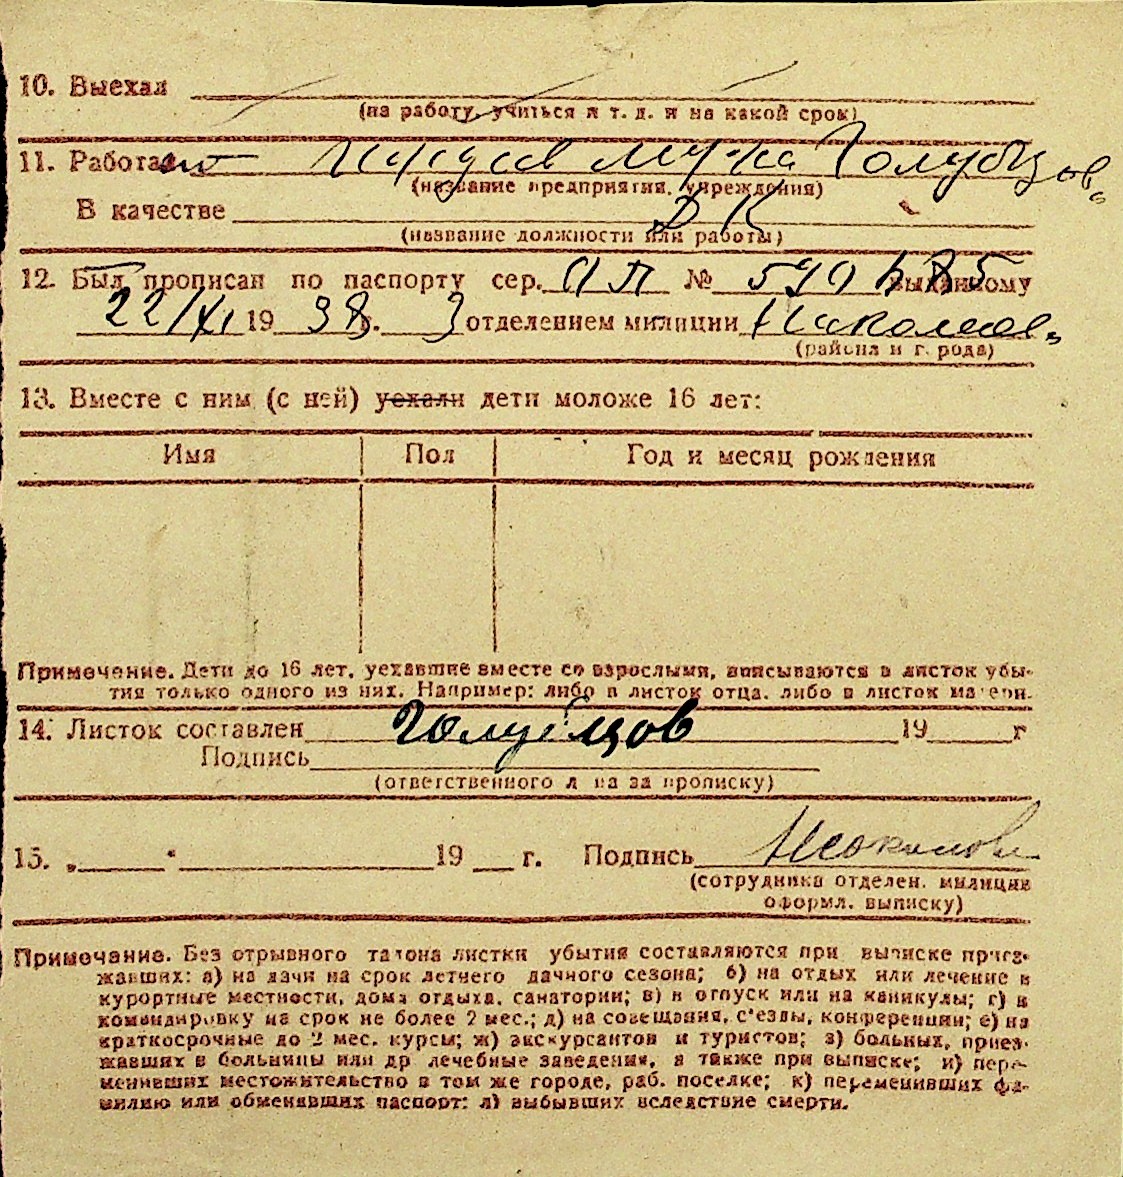 10. Выехал
(на работу, учиться и т. д. и на какой срок)
11. Работает мужа Голубцов
(название предприятия, учреждения)
В качестве
(название должности или работы)
12. Был прописан по паспорту сер. № выданному
22/XI 1938 г. 3 отделением милиции
(района и города)
13. Вместе с ним (с ней) уехали дети моложе 16 лет:
Имя Пол Год и месяц рождения
Примечание. Дети до 16 лет, уехавшие вместе со взрослыми, вписываются в листок убы-
тия только одного из них. Например: либо в листок отца, либо в листок матери.
14. Листок составлен Голубцов 19 г
Подпись
(ответственного лица за прописку)
15. „ " 19 г. Подпись
(сотрудника отделен. милиции
оформл. выписку)
Примечание. Без отрывного талона листки убытия составляются при выписке приез-
жавших: а) на дачи на срок летнего дачного сезона; б) на отдых или лечение в
курортные местности, дома отдыха, санатории; в) в отпуск или на каникулы; г) в
командировку на срок не более 2 мес.; д) на совещания, с'езды, конференции; е) на
краткосрочные до 2 мес. курсы; ж) экскурсантов и туристов; з) больных, приез-
жавших в больницы или др лечебные заведения, а также при выписке; и) пере-
менивших местожительство в том же городе, раб. поселке; к) переменивших фа-
милию или обменявших паспорт; л) выбывших вследствие смерти.